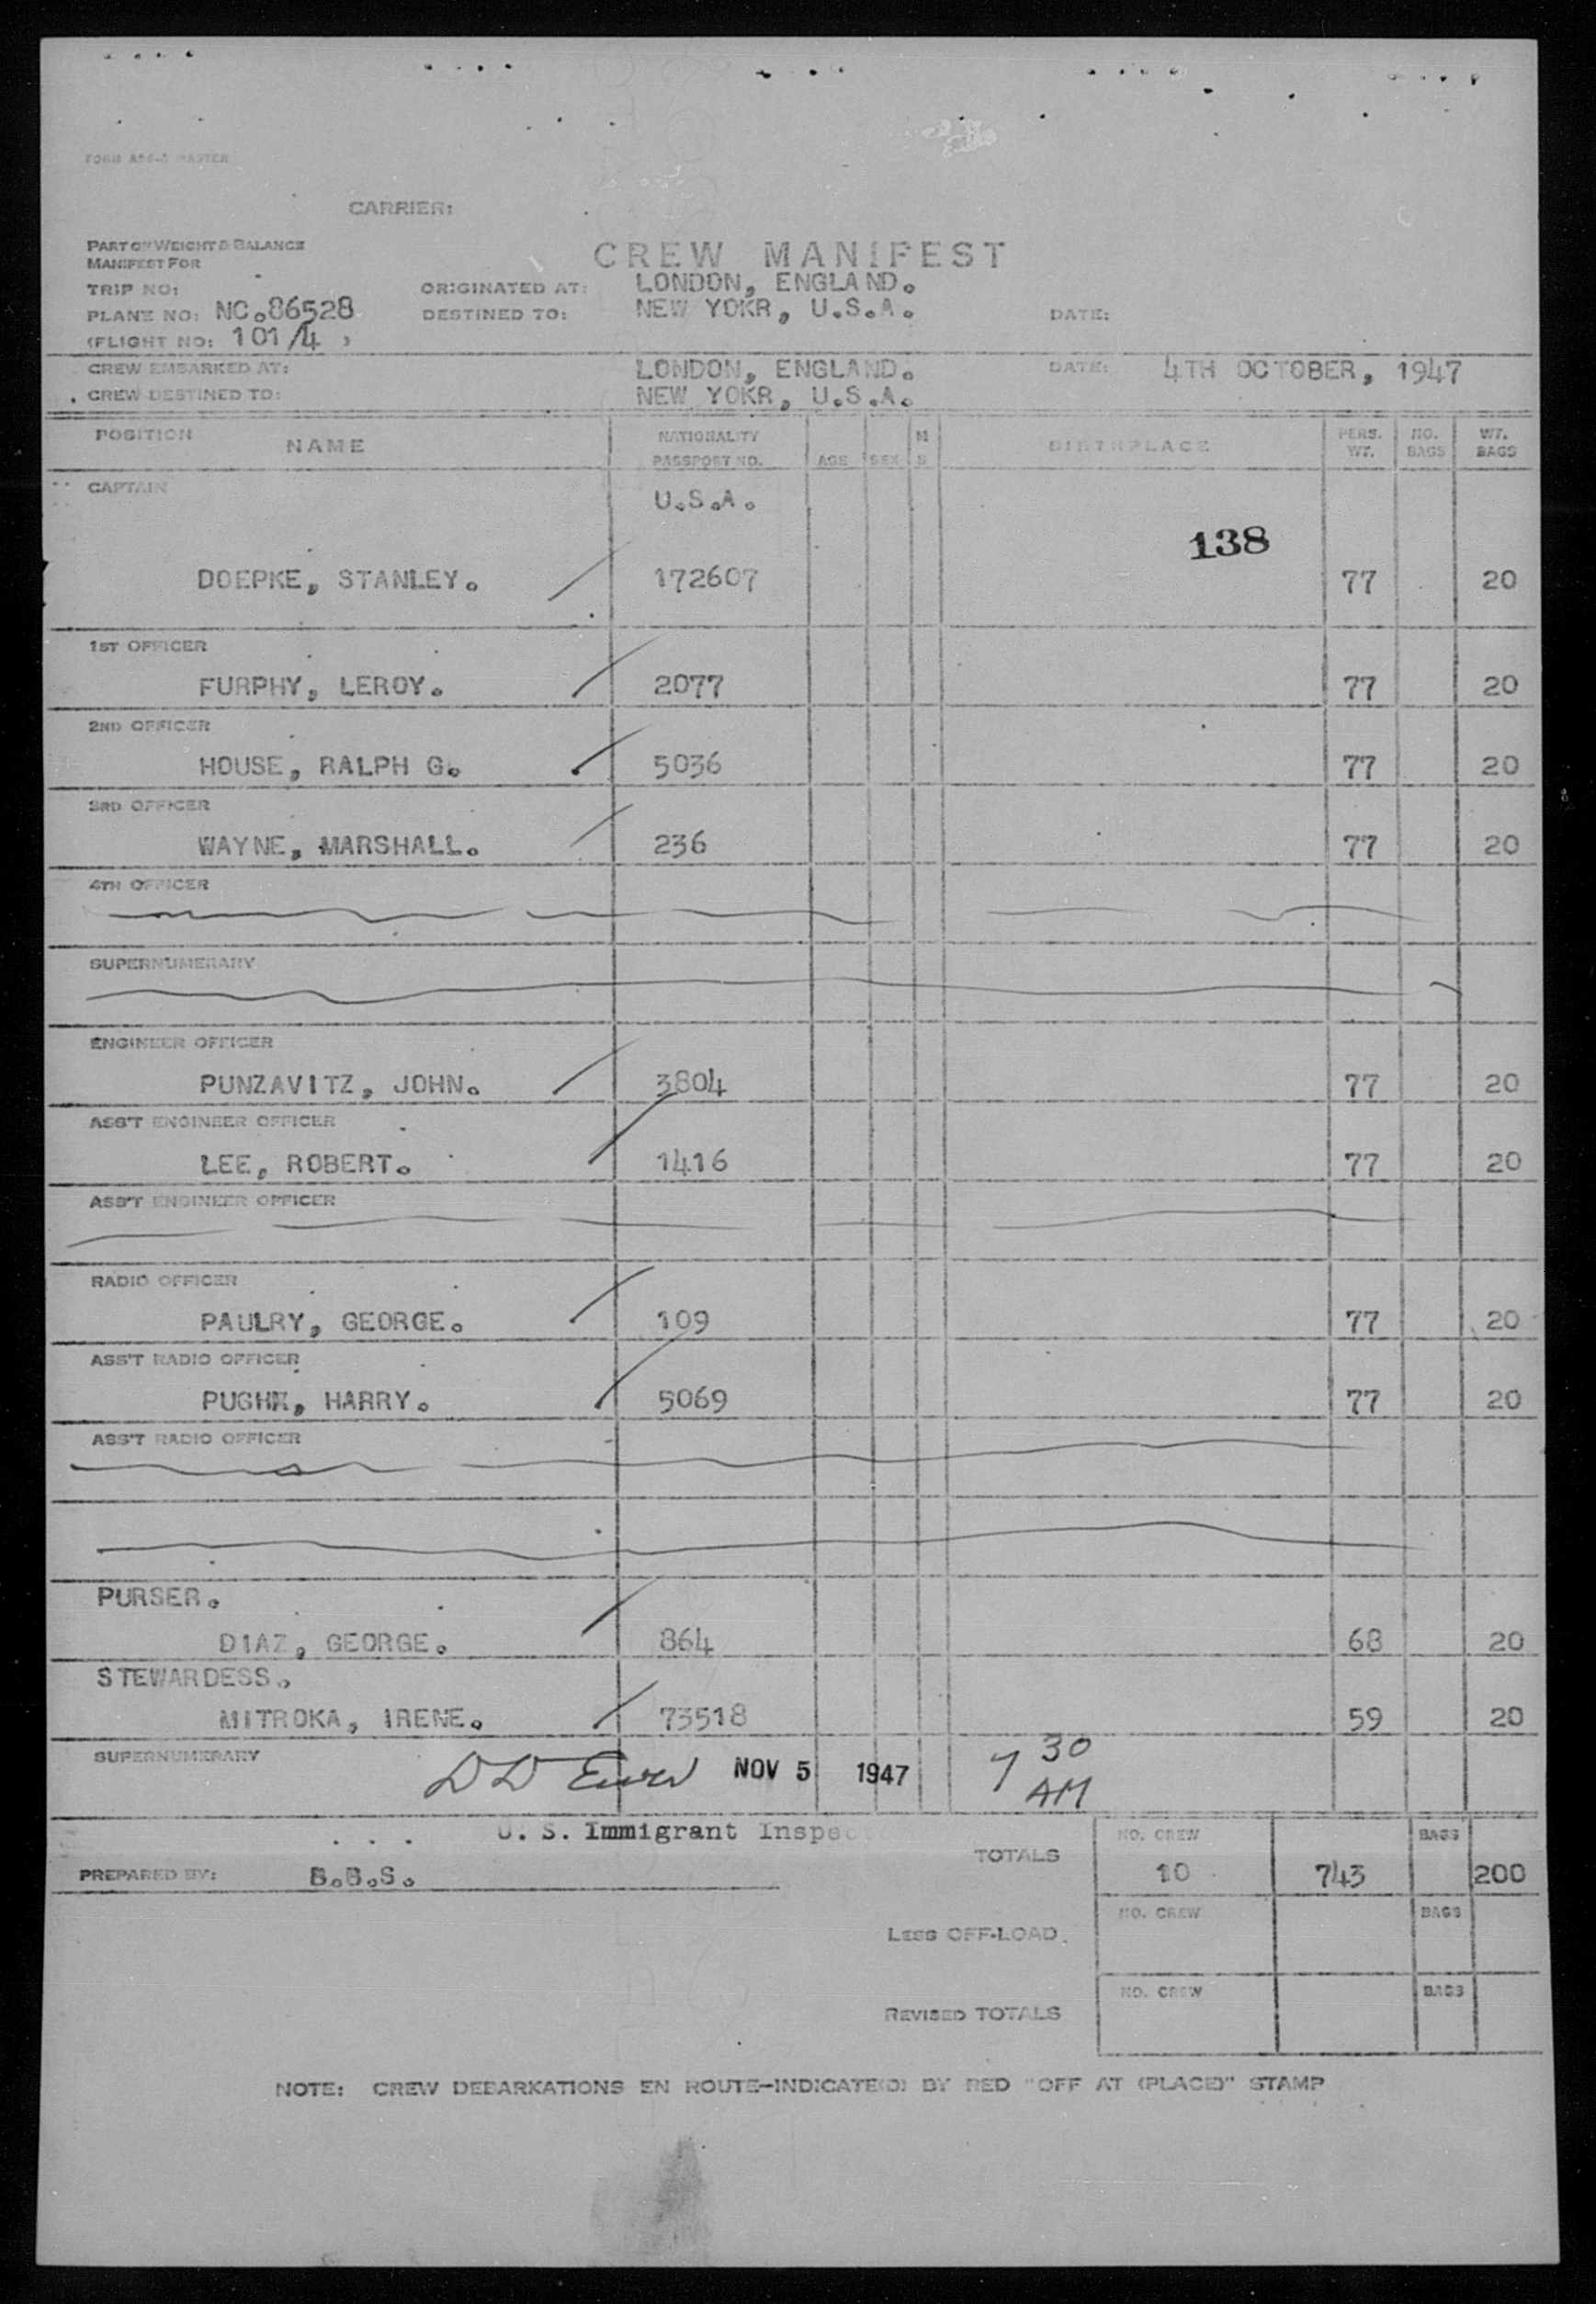 FORM ASC-5 MASTER
CARRIER:
PART OF WEIGHT & BALANCE
MANIFEST FOR
CREW MANIFEST
TRIP NO: ORIGINATED AT: LONDON, ENGLAND.
PLANE NO: NC.86528 DESTINED TO: NEW YOKR, U.S.A. DATE:
(FLIGHT NO: 101/4 )
CREW EMBARKED AT: LONDON, ENGLAND. DATE: 4TH OCTOBER, 1947
CREW DESTINED TO: NEW YOKR, U.S.A.
POSITION NAME NATIONALITY PASSPORT NO. AGE SEX M S BIRTHPLACE PERS. WT. NO. BAGS WT. BAGS
CAPTAIN U.S.A.
138
DOEPKE, STANLEY. 172607 77 20
1ST OFFICER
FURPHY, LEROY. 2077 77 20
2ND OFFICER
HOUSE, RALPH G. 5036 77 20
3RD OFFICER
WAYNE, MARSHALL. 236 77 20
4TH OFFICER
SUPERNUMERARY
ENGINEER OFFICER
PUNZAVITZ, JOHN. 3804 77 20
ASS'T ENGINEER OFFICER
LEE, ROBERT. 1416 77 20
ASS'T ENGINEER OFFICER
RADIO OFFICER
PAULRY, GEORGE. 109 77 20
ASS'T RADIO OFFICER
PUGH, HARRY. 5069 77 20
ASS'T RADIO OFFICER
PURSER.
DIAZ, GEORGE. 864 68 20
STEWARDESS.
MITROKA, IRENE. 73518 59 20
SUPERNUMERARY
NOV 5 1947 7 30 AM
U. S. Immigrant Inspec
TOTALS NO. CREW 10 743 BAGS 200
PREPARED BY: B.B.S.
LESS OFF-LOAD. NO. CREW BAGS
REVISED TOTALS NO. CREW BAGS
NOTE: CREW DEBARKATIONS EN ROUTE—INDICATE(D) BY RED "OFF AT (PLACE)" STAMP